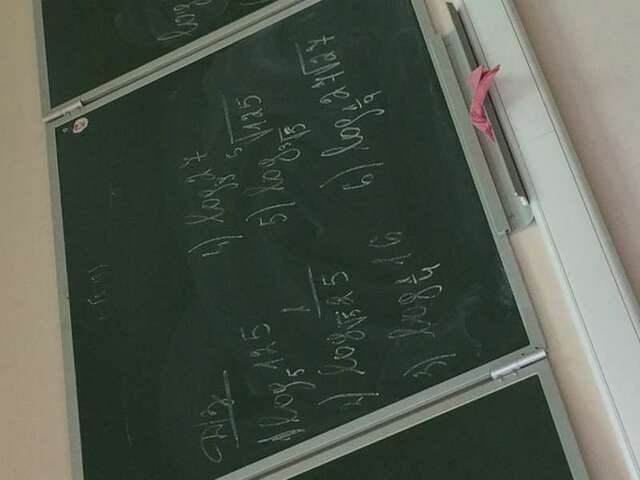 Д/з
1) log₅ 125
2) log_√5 1/25
3) log_1/4 16
4) log 27
5) log_³√5 ⁵√125
6) log_1/9 27 ⁷√27
log